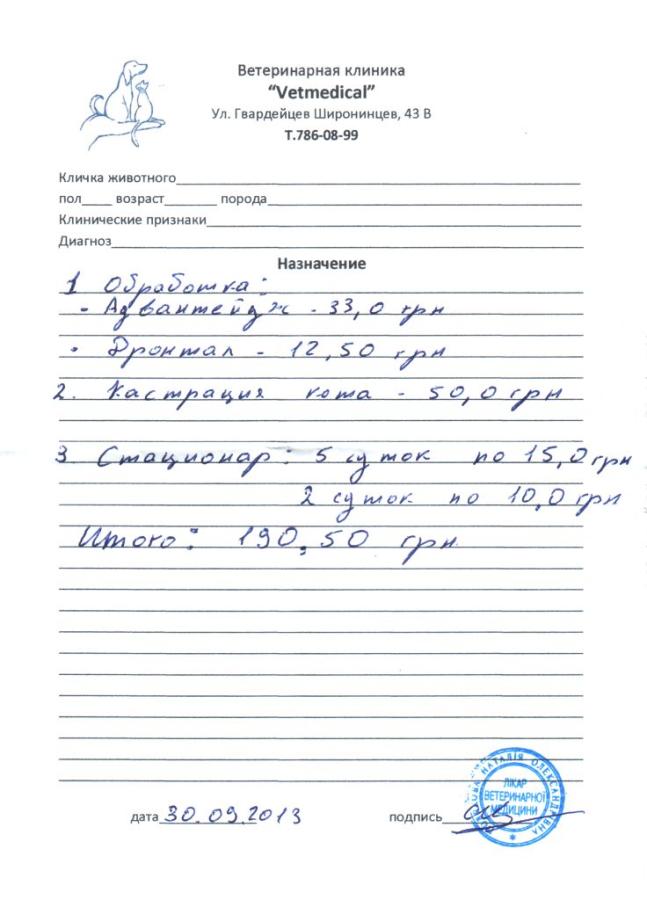 Ветеринарная клиника
“Vetmedical”
Ул. Гвардейцев Широнинцев, 43 В
Т.786-08-99
Кличка животного
пол____ возраст_______ порода
Клинические признаки
Диагноз
Назначение
1 Обработка:
- Адвантейдж - 33,0 грн
• Дронтал - 12,50 грн
2. Кастрация кота - 50,0 грн
3 Стационар: 5 суток по 15,0 грн
2 суток по 10,0 грн
Итого: 190,50 грн
дата 30.09.2013 подпись
НАТАЛІЯ ОЛЕКСАНДРІВНА
ЛІКАР
ВЕТЕРИНАРНОЇ
МЕДИЦИНИ